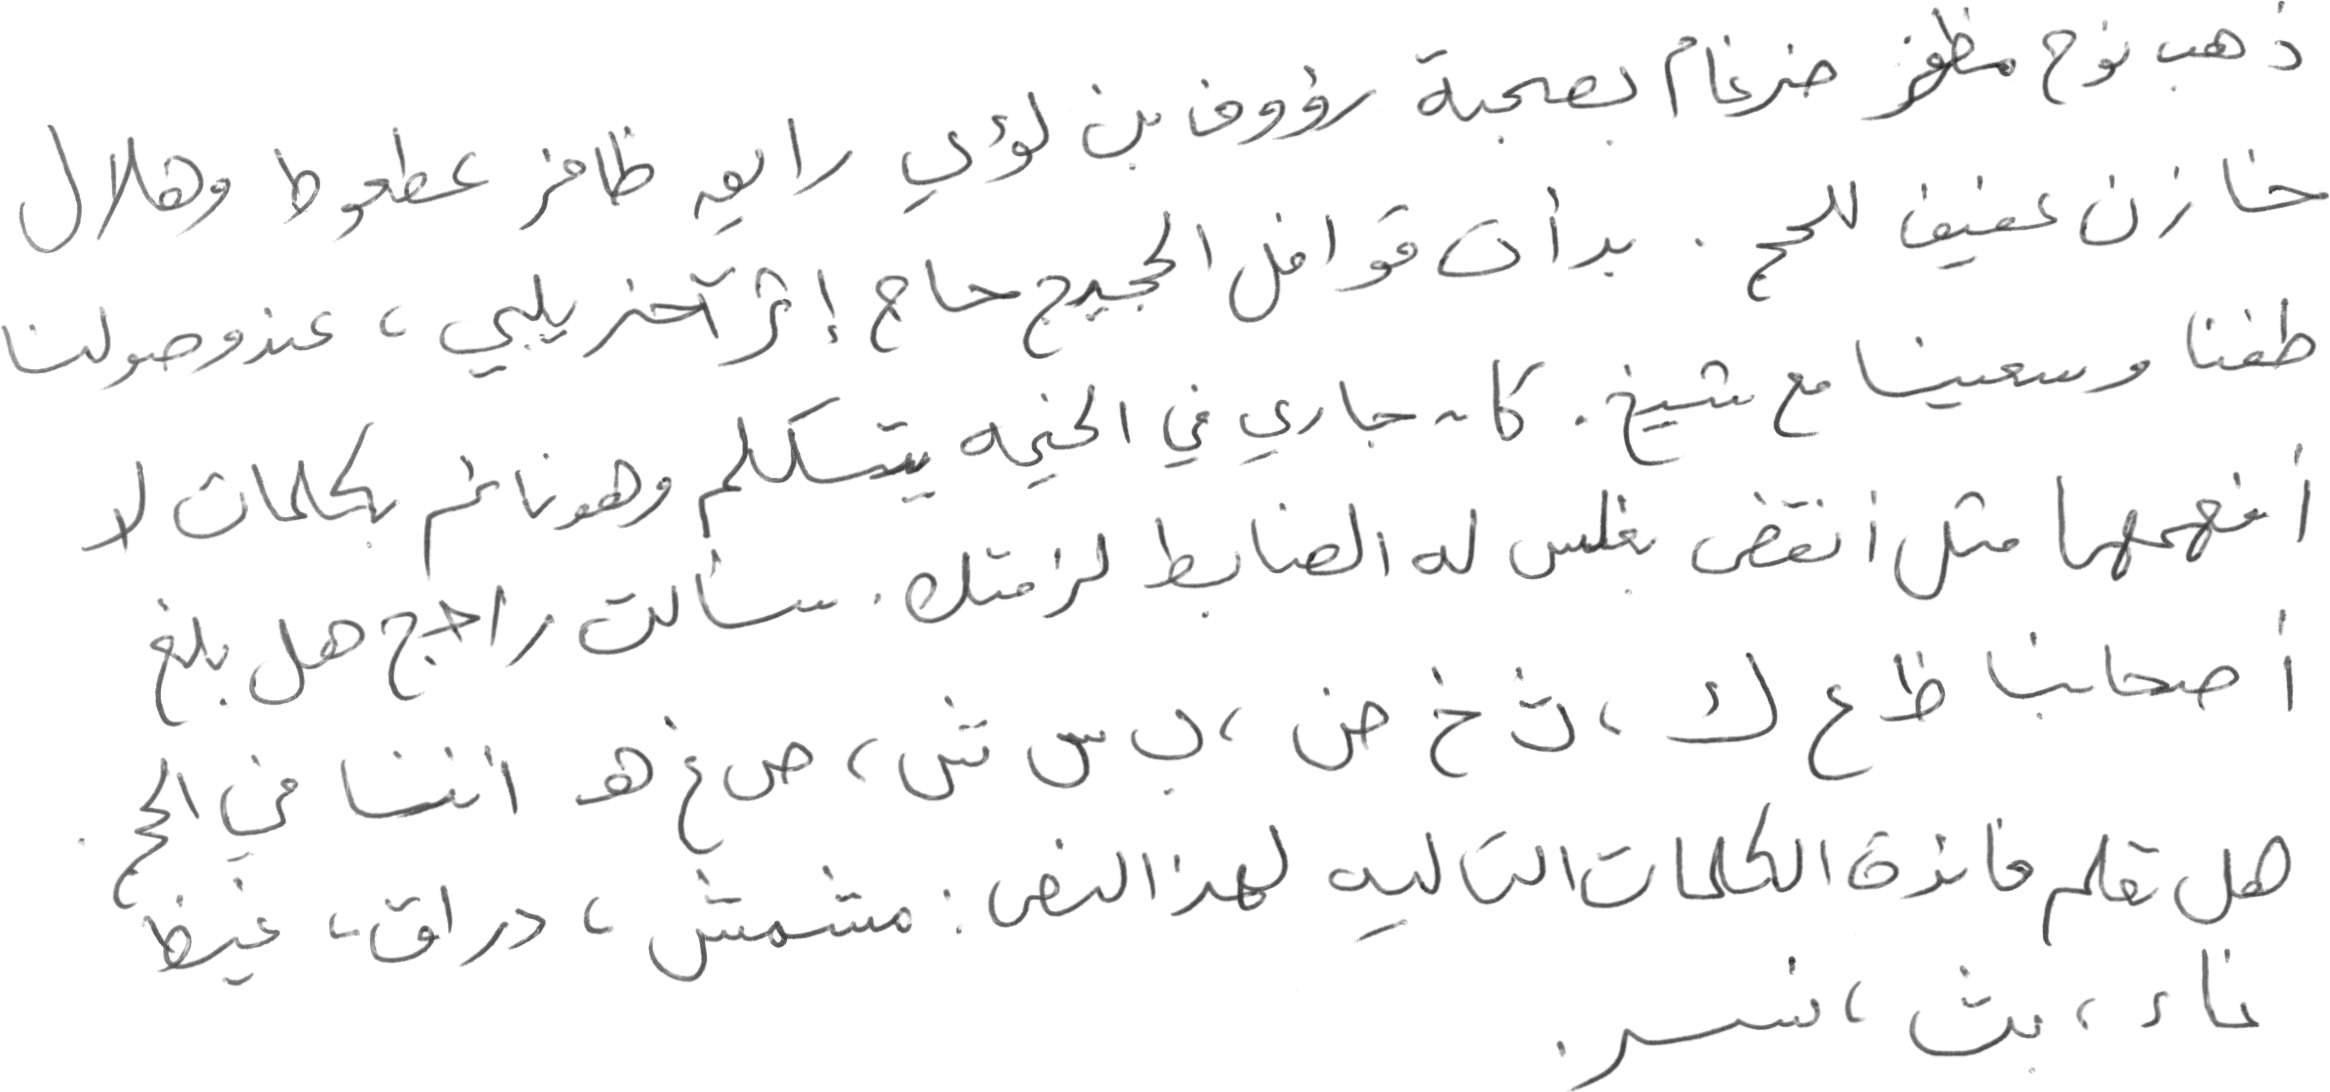 ذهب نوح مظفر ضرغام بصحبة رؤوف بن لؤي رايعه ظافر عطعوط وهلال
خازن عفيف للحج . بدأت قوافل الحجيج حاج إثر آخر يلبي ، عند وصولنا
طفنا وسعينا مع شيخ . كان جاري في الخيمه يتكلم وهو نائم بكلمات لا
أفهمها مثل أنقض بغلس له الضابط لزمتك . سألت راجح هل بلغ
أصحابنا ظ ع ك ، ث خ ض ، ب س ش ، ص غ هـ اننا في الحج .
هل تعلم فائدة الكلمات التاليه لهذا النص : مشمش ، دراق ، غيظ
ناء ، بث ، نسر .